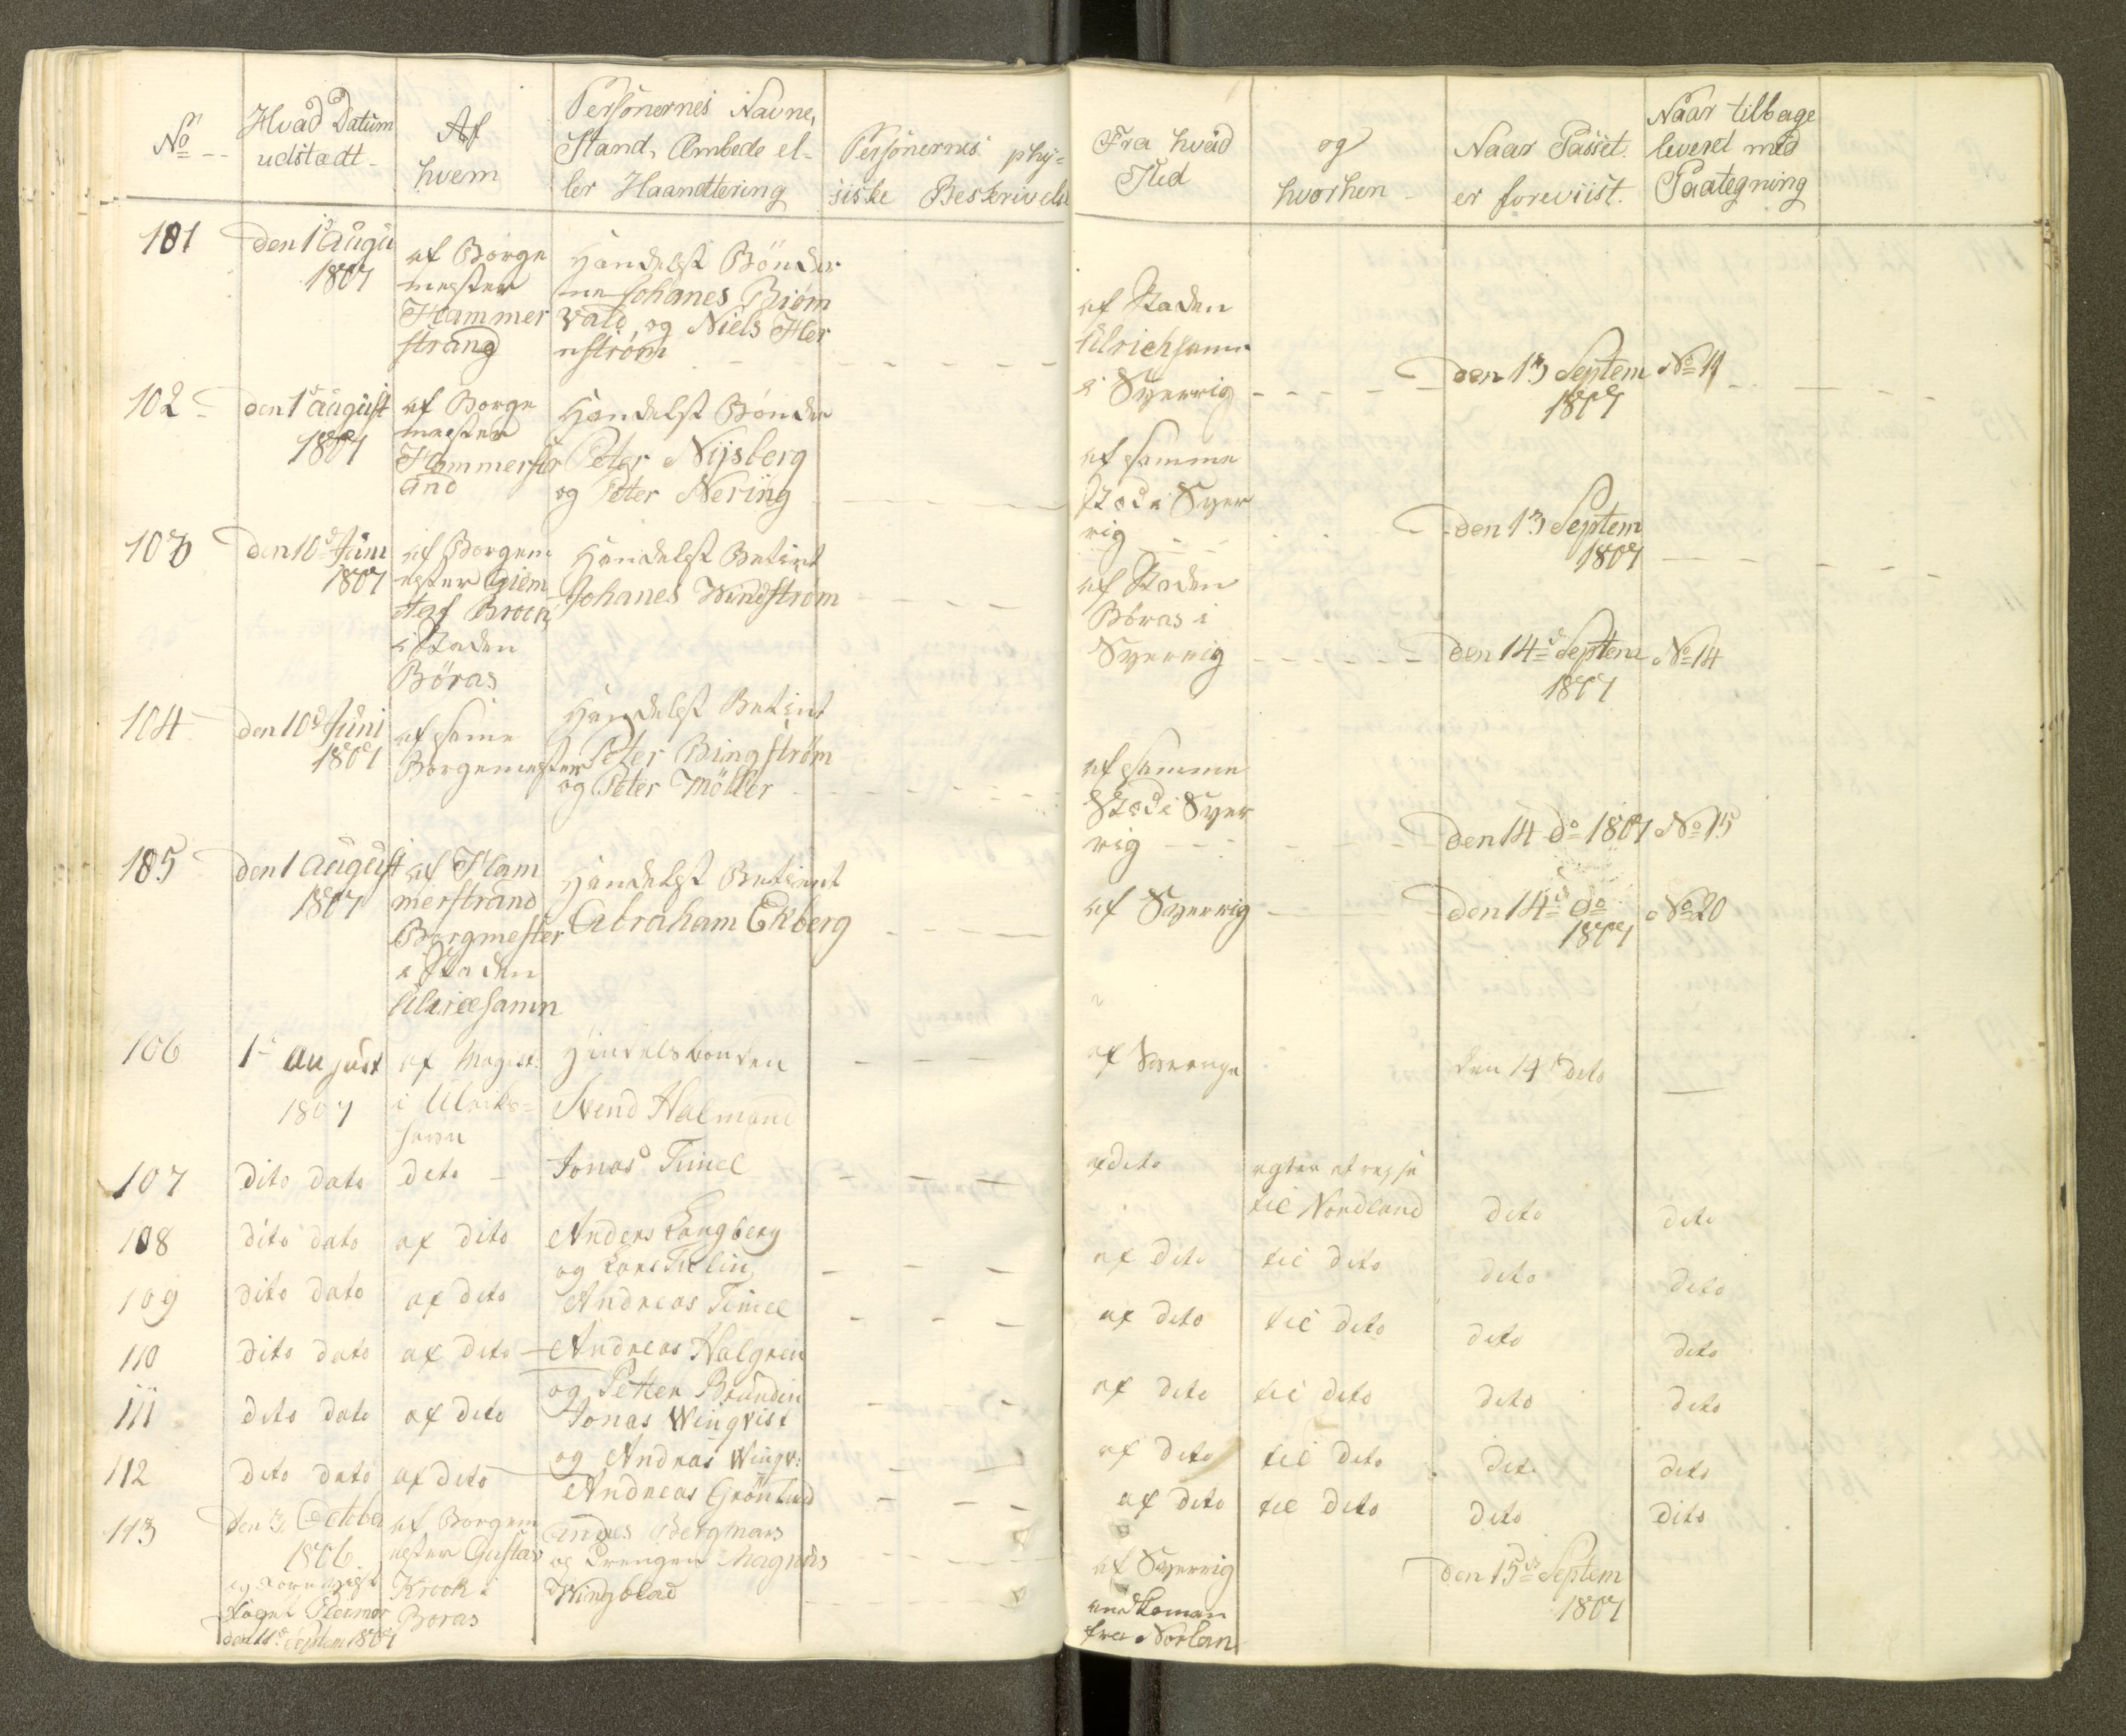 No
Hvad Datum
udstædt
Af
hvem
Personernes Navne,
Stand, Æmbede el-
ler Haandtering
Personernes phy-
siske Beskrivelse
Fra hvad
Sted
og
hvorhen
Naar Passet
er foreviist.
Naar tilbage
leveret med
Paategning
101
den 1d augu
1807
af Borge
mester
Hammer
strand
Handelst Bønder
ne Johanes Biörn
vald, og Niels Her
nström
af Staden
Ulrichsamn
i Sverrig
den 13 Septem
1807
No 11
102
den 1d august
1807
af Borge
mester
Hammerstr
and
Handelst Bönder
Peter Nijsberg
og Peter Nering
af samme
Stad i Sver
rig
den 13 Septem
1807
103
den 10d Juni
1807
af Borgem
ester
i Staden
Böras
Handelst Betient
Johanes Windström
af Staden
Böras i
Sverrig
den 14d Septem
1807
No 14
104
den 10d Juni
1807
af same
Borgemester
Handelst Betient
Peter Bingström
og Peter Möller
af samme
Stad i Sver
rig
den 14 do 1807
No 15
105
den 1 august
1807
af Ham
merstrand
Borgmester
i Staden
Ulricesamn
Handelst Betient
Abraham Ekberg
af Sverrig
den 14d do
1807
No 20
106
1d august
1807
af Magist:
i Ulriks-
hamn
Handelsbonden
Svend Halmand
af Sverrige
den 14d deto
107
dito dato
deto
Jonas Timel
af deto
agter at rejse
til Nordland
deto
deto
108
dito dato
af dito
Anders Langberg
og Lars Tulin
af deto
til deto
deto
deto
109
dito dato
af deto
Andreas Timel
af deto
til deto
deto
deto
110
dito dato
af deto
Andreas Halgren
og Petter Brundin
af deto
til deto
deto
deto
111
deto dato
af deto
Jonas Winqvist
og Andreas Winqv:
af deto
til deto
deto
deto
112
deto dato
af deto
Andreas Grönlund
af deto
til deto
deto
dito
113
den 3 October
1806
den 11d Septem 1807
af Borgem
ester Gustav
Krook i
Boras
Andres Bergman
og Drengen Magnus
Wingblad
af Sverrig
fra Norlan
den 15d Septem
1807